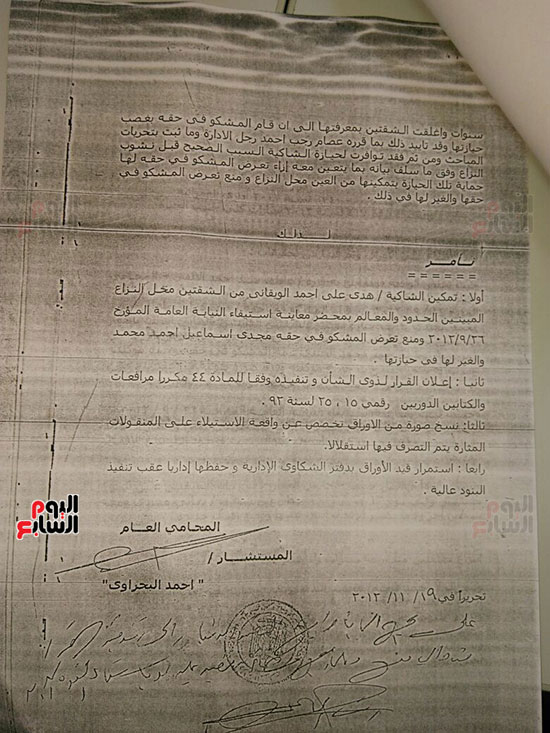 سنوات واغلقت الشقتين بمعرفتها الى ان قام المشكو في حقه بغصب
حيازتها وقد تايد ذلك بما قرره عصام رجب احمد رجل الادارة وما ثبت بتحريات
المباحث ومن ثم فقد توافرت لحيازة الشاكية السبب الصحيح قبل نشوب
النزاع وفق ما سلف بيانه بما يتعين معه إزاء تعرض المشكو في حقه لها
حماية تلك الحيازة بتمكينها من العين محل النزاع و منع تعرض المشكو في
حقها والغير لها في ذلك .
لـذلـك
نـامـر
======
أولا : تمكين الشاكية / هدى على احمد الويقانى من الشقتين محل النزاع
المبينتين الحدود والمعالم بمحضر معاينة استيفاء النيابة العامة المؤرخ
٢٠١٢/٩/٢٦ ومنع تعرض المشكو في حقه مجدى اسماعيل احمد محمد
والغير لها في حيازتها .
ثانيا : إعلان القرار لذوى الشأن و تنفيذه وفقا للمادة ٤٤ مكررا مرافعات
والكتابين الدوريين رقمي ١٥ ، ٢٥ لسنة ٩٢ .
ثالثا: نسخ صورة من الاوراق تخصص عن واقعة الاستيلاء على المنقولات
المثارة يتم التصرف فيها استقلالا.
رابعا : استمرار قيد الأوراق بدفتر الشكاوى الإدارية و حفظها إداريا عقب تنفيذ
البنود عالية .
اليوم السابع
اليوم السابع
اليوم السابع
المحامي العام
المستشار /
" احمد البحراوى"
تحريرا في ١٩/ ١١/ ٢٠١٢